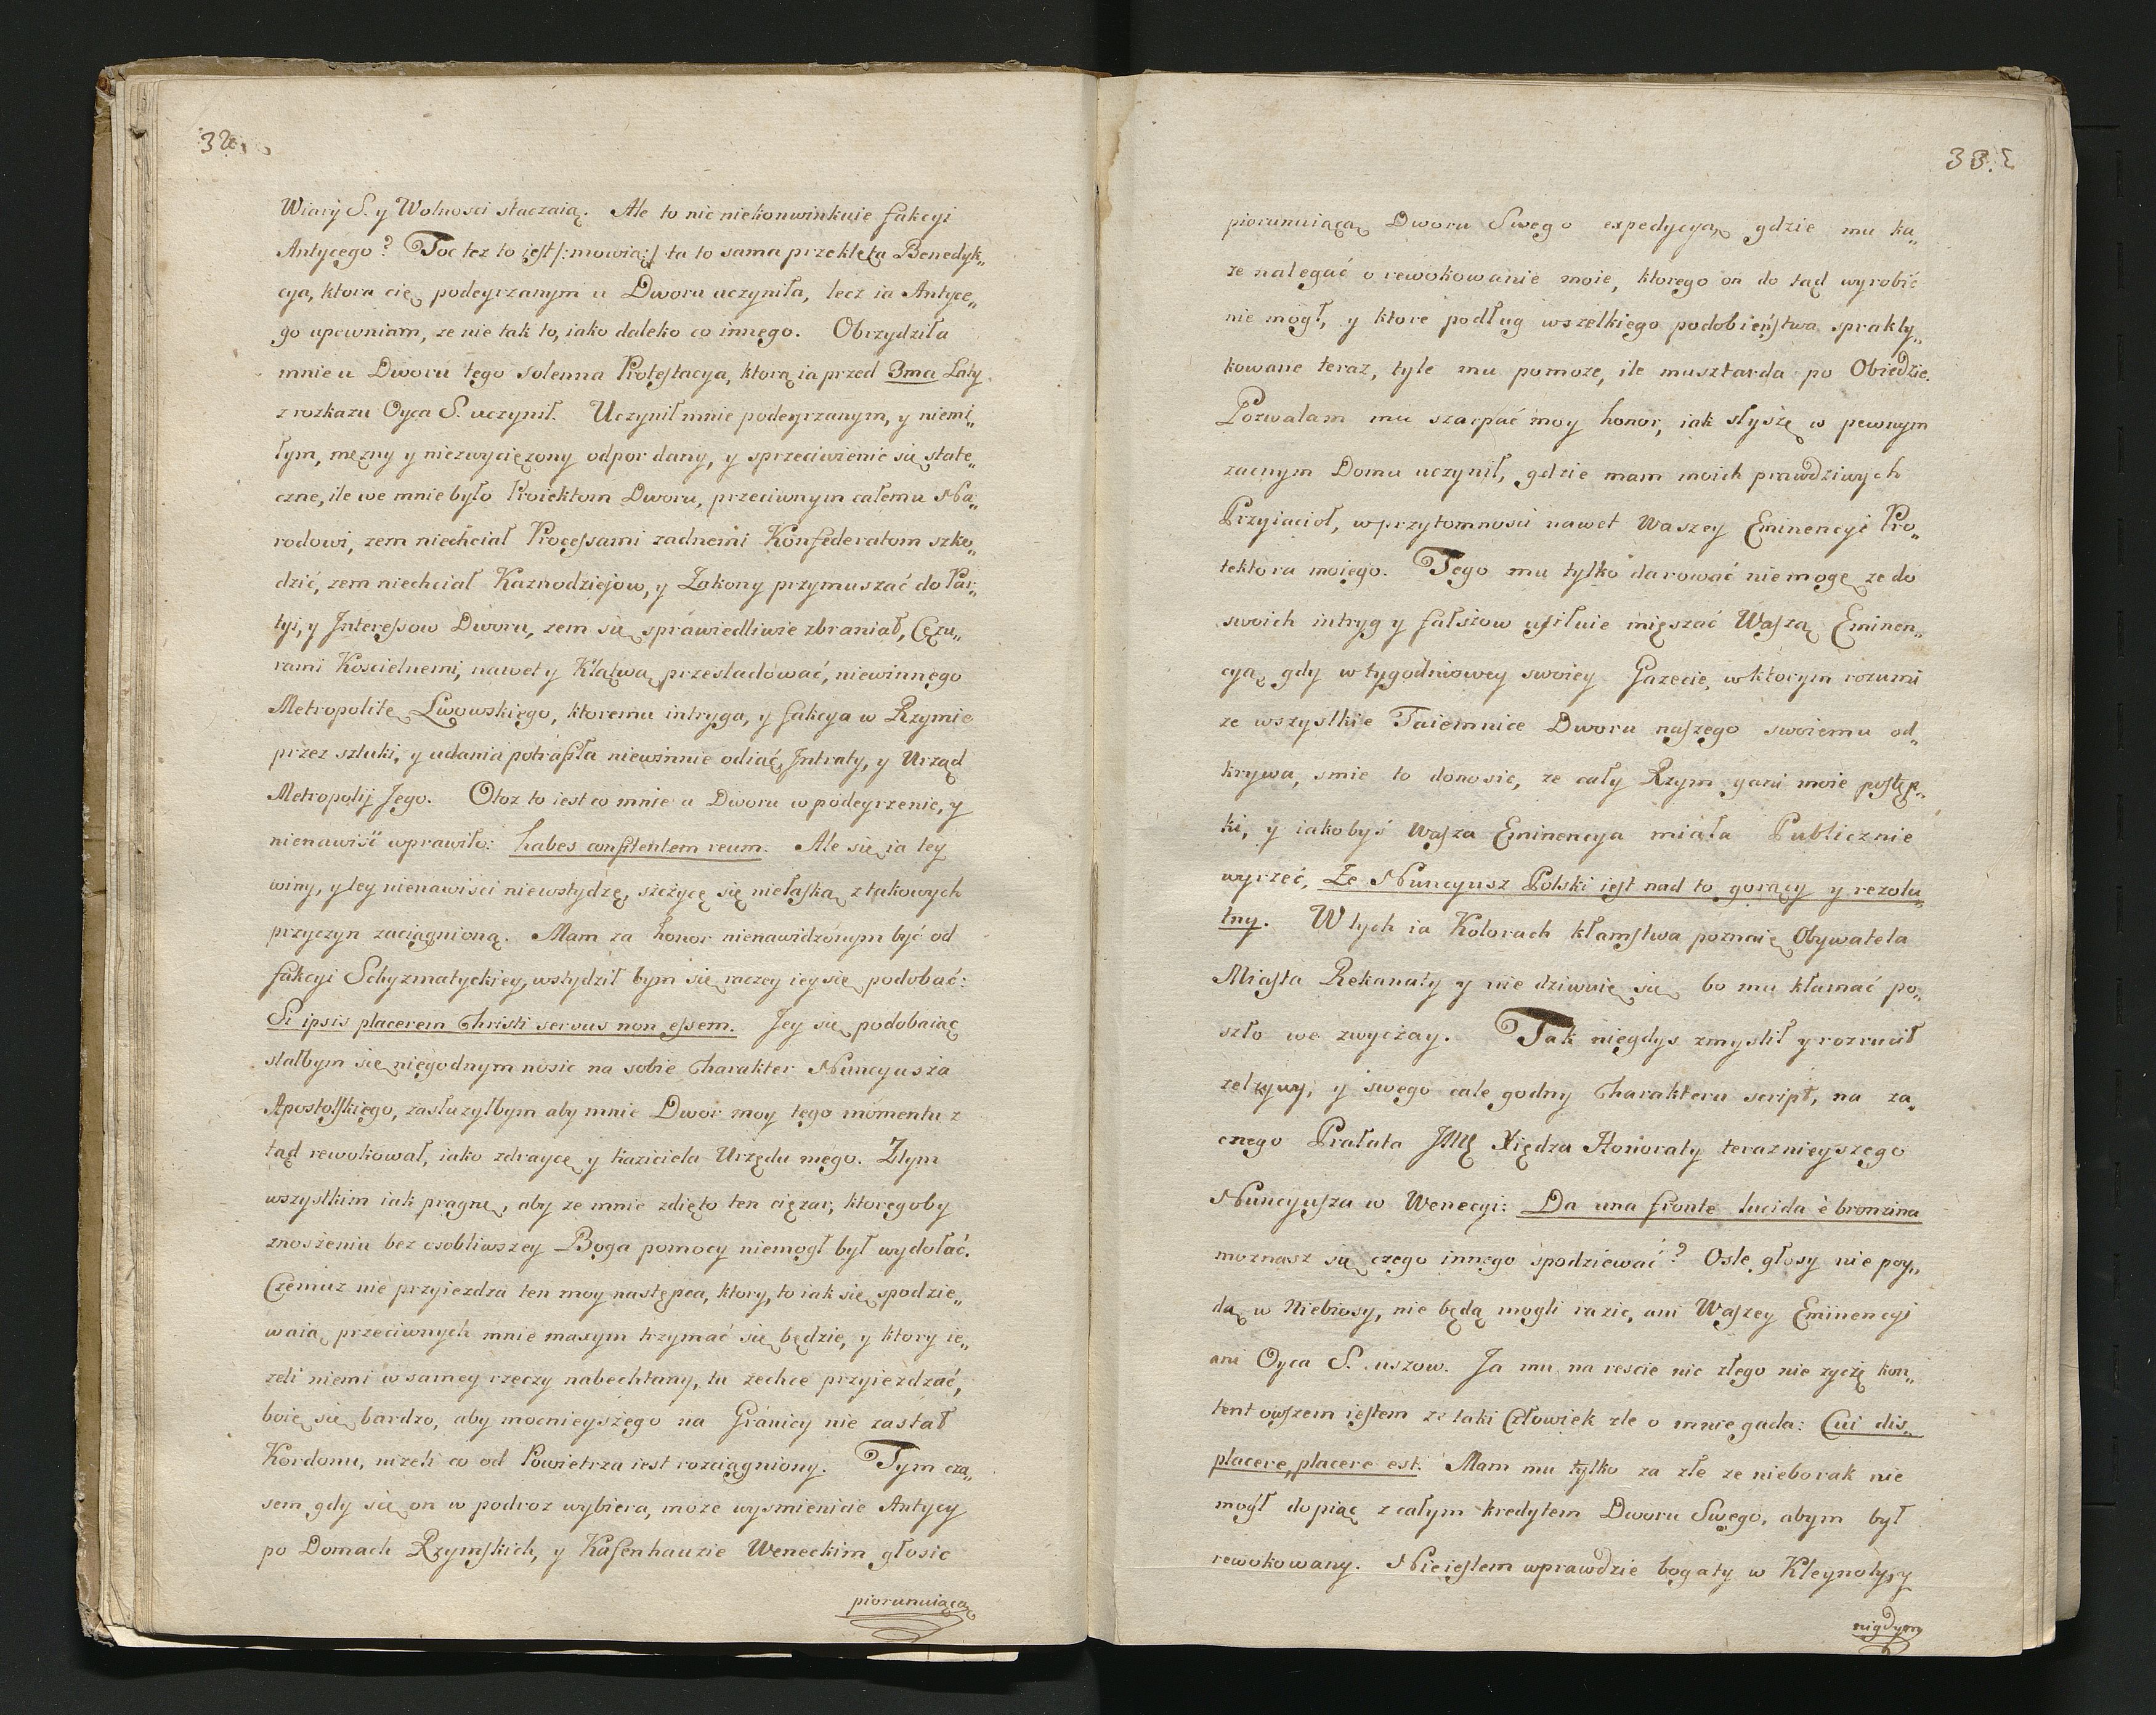 32.
Wiary S. y Wolnosci staczaią. Ale to nic niekonwinkuie fakcyi
Antycego? Toc tez to iest /:mowią:/ ta to sama przeklęta Benedyk„
cya, ktora cię podeyrzanym u Dworu uczyniła, lecz ia Antyce„
go upewniam, ze nie tak to, iako daleko co innego. Obrzydziła
mnie u Dworu tego solenna Protestacya, ktorą ia przed 3ma Laty
z rozkazu Oyca S. uczynił. Uczynił mnie podeyrzanym, y niemi„
łym, męzny y niezwycięzony odpor dany, y sprzeciwienie się state„
czne, ile we mnie było Proiektom Dworu, przeciwnym całemu Na„
rodowi, zem niechciał Processami zadnemi Konfederatom szko„
dzić, zem niechciał Kaznodziejow, y Zakony przymuszać do Par„
tyi, y Interessow Dworu, zem się sprawiedliwie zbraniał, Cęzu„
rami Koscielnemi, nawet y Klątwą przesladować, niewinnego
Metropolitę Lwowskiego, ktoremu intryga, y fakcya w Rzymie
przez sztuki, y udania potrafiła niewinnie odiąć Intraty, y Urząd
Metropolij Jego. Otoz to iest co mnie u Dworu w podeyrzenie, y
nienawiść wprawiło: habes confitentem reum. Ale się ia tey
winy, y tey nienawisci niewstydzę, szczycę się niełaską z takowych
przyczyn zaciągnioną. Mam za honor nienawidzonym być od
fakcyi Schyzmatyckiey, wstydził bym się raczey iey się podobać:
Si ipsis placerem Christi servus non essem. Jey się podobaiąc
stałbym się niegodnym nosic na sobie Charakter Nuncyusza
Apostolskiego, zasłuzyłbym aby mnie Dwor moy tego momentu z
tąd rewokował, iako zdraycę y kaziciela Urzędu mego. Z tym
wszystkim iak pragnę, aby ze mnie zdięto ten cięzar, ktoregoby
znoszeniu bez osobliwszey Boga pomocy niemogł był wydołać.
Czemuz nie przyiezdza ten moy następca, ktory, to iak się spodzie„
waią przeciwnych mnie maxym trzymać się będzie, y ktory ie„
zeli niemi w samey rzeczy nabechtany, tu zechce przyiezdzać,
boię się bardzo, aby mocnieyszego na Granicy nie zastał
Kordonu, nizeli co od Powietrza iest rozciągniony. Tym cza„
sem gdy się on w podroz wybiera, moze wysmienicie Antycy
po Domach Rzymskich, y Kafenhauzie Weneckim głosic
piorunuiącą
33.
piorunuiącą Dworu Swego expedycyą, gdzie mu ka„
ze nalegać o rewokowanie moie, ktorego on do tąd wyrobić
nie mogł, y ktore podług wszelkiego podobieństwa sprakty„
kowane teraz, tyle mu pomoze, ile musztarda po Obiedzie.
Pozwalam mu szarpać moy honor, iak słyszę w pewnym
zacnym Domu uczynił, gdzie mam moich prawdziwych
Przyiacioł, w przytomnosci nawet Waszey Eminencyi Pro„
tektora moiego. Tego mu tylko darować niemogę ze do
swoich intryg y fałszow usiłuie mięszać Waszą Eminen„
cyą gdy w tygodniowey swoiey Gazecie, w ktorym rozumi
ze wszystkie Taiemnice Dworu naszego swoiemu od„
krywa, smie to donosic, ze cały Rzym gani moie postęp„
ki, y iakobyś Wasza Eminencya miała Publicznie
wyrzec, Ze Nuncyusz Polski iest nad to gorący y rezolu„
tny. W tych ia Kolorach kłamstwa poznaię Obywatela
Miasta Rekanaty y nie dziwuię się bo mu kłamać po„
szło we zwyczay. Tak niegdys zmyslił y rozrucił
zelzywy, y swego cale godny Charakteru script, na za„
cnego Prałata JMę Xiędza Honoraty teraznieyszego
Nuncyusza w Wenecyi: Da una fronte lucida è bronzina
moznasz się czego innego spodziewać? Osle głosy nie poy„
dą w Niebiosy, nie będą mogli razic, ani Waszey Eminencyi
ani Oyca S. uszow. Ja mu na rescie nic złego nie zyczę kon„
tent owszem iestem ze taki Człowiek zle o mnie gada: Cui dis„
placere, placere est. Mam mu tylko za złe ze nieborak nie
mógł dopiąc z całym kredytem Dworu Swego, abym był
rewokowany. Nieiestem wprawdzie bogaty w Kleynoty, y
nigdym